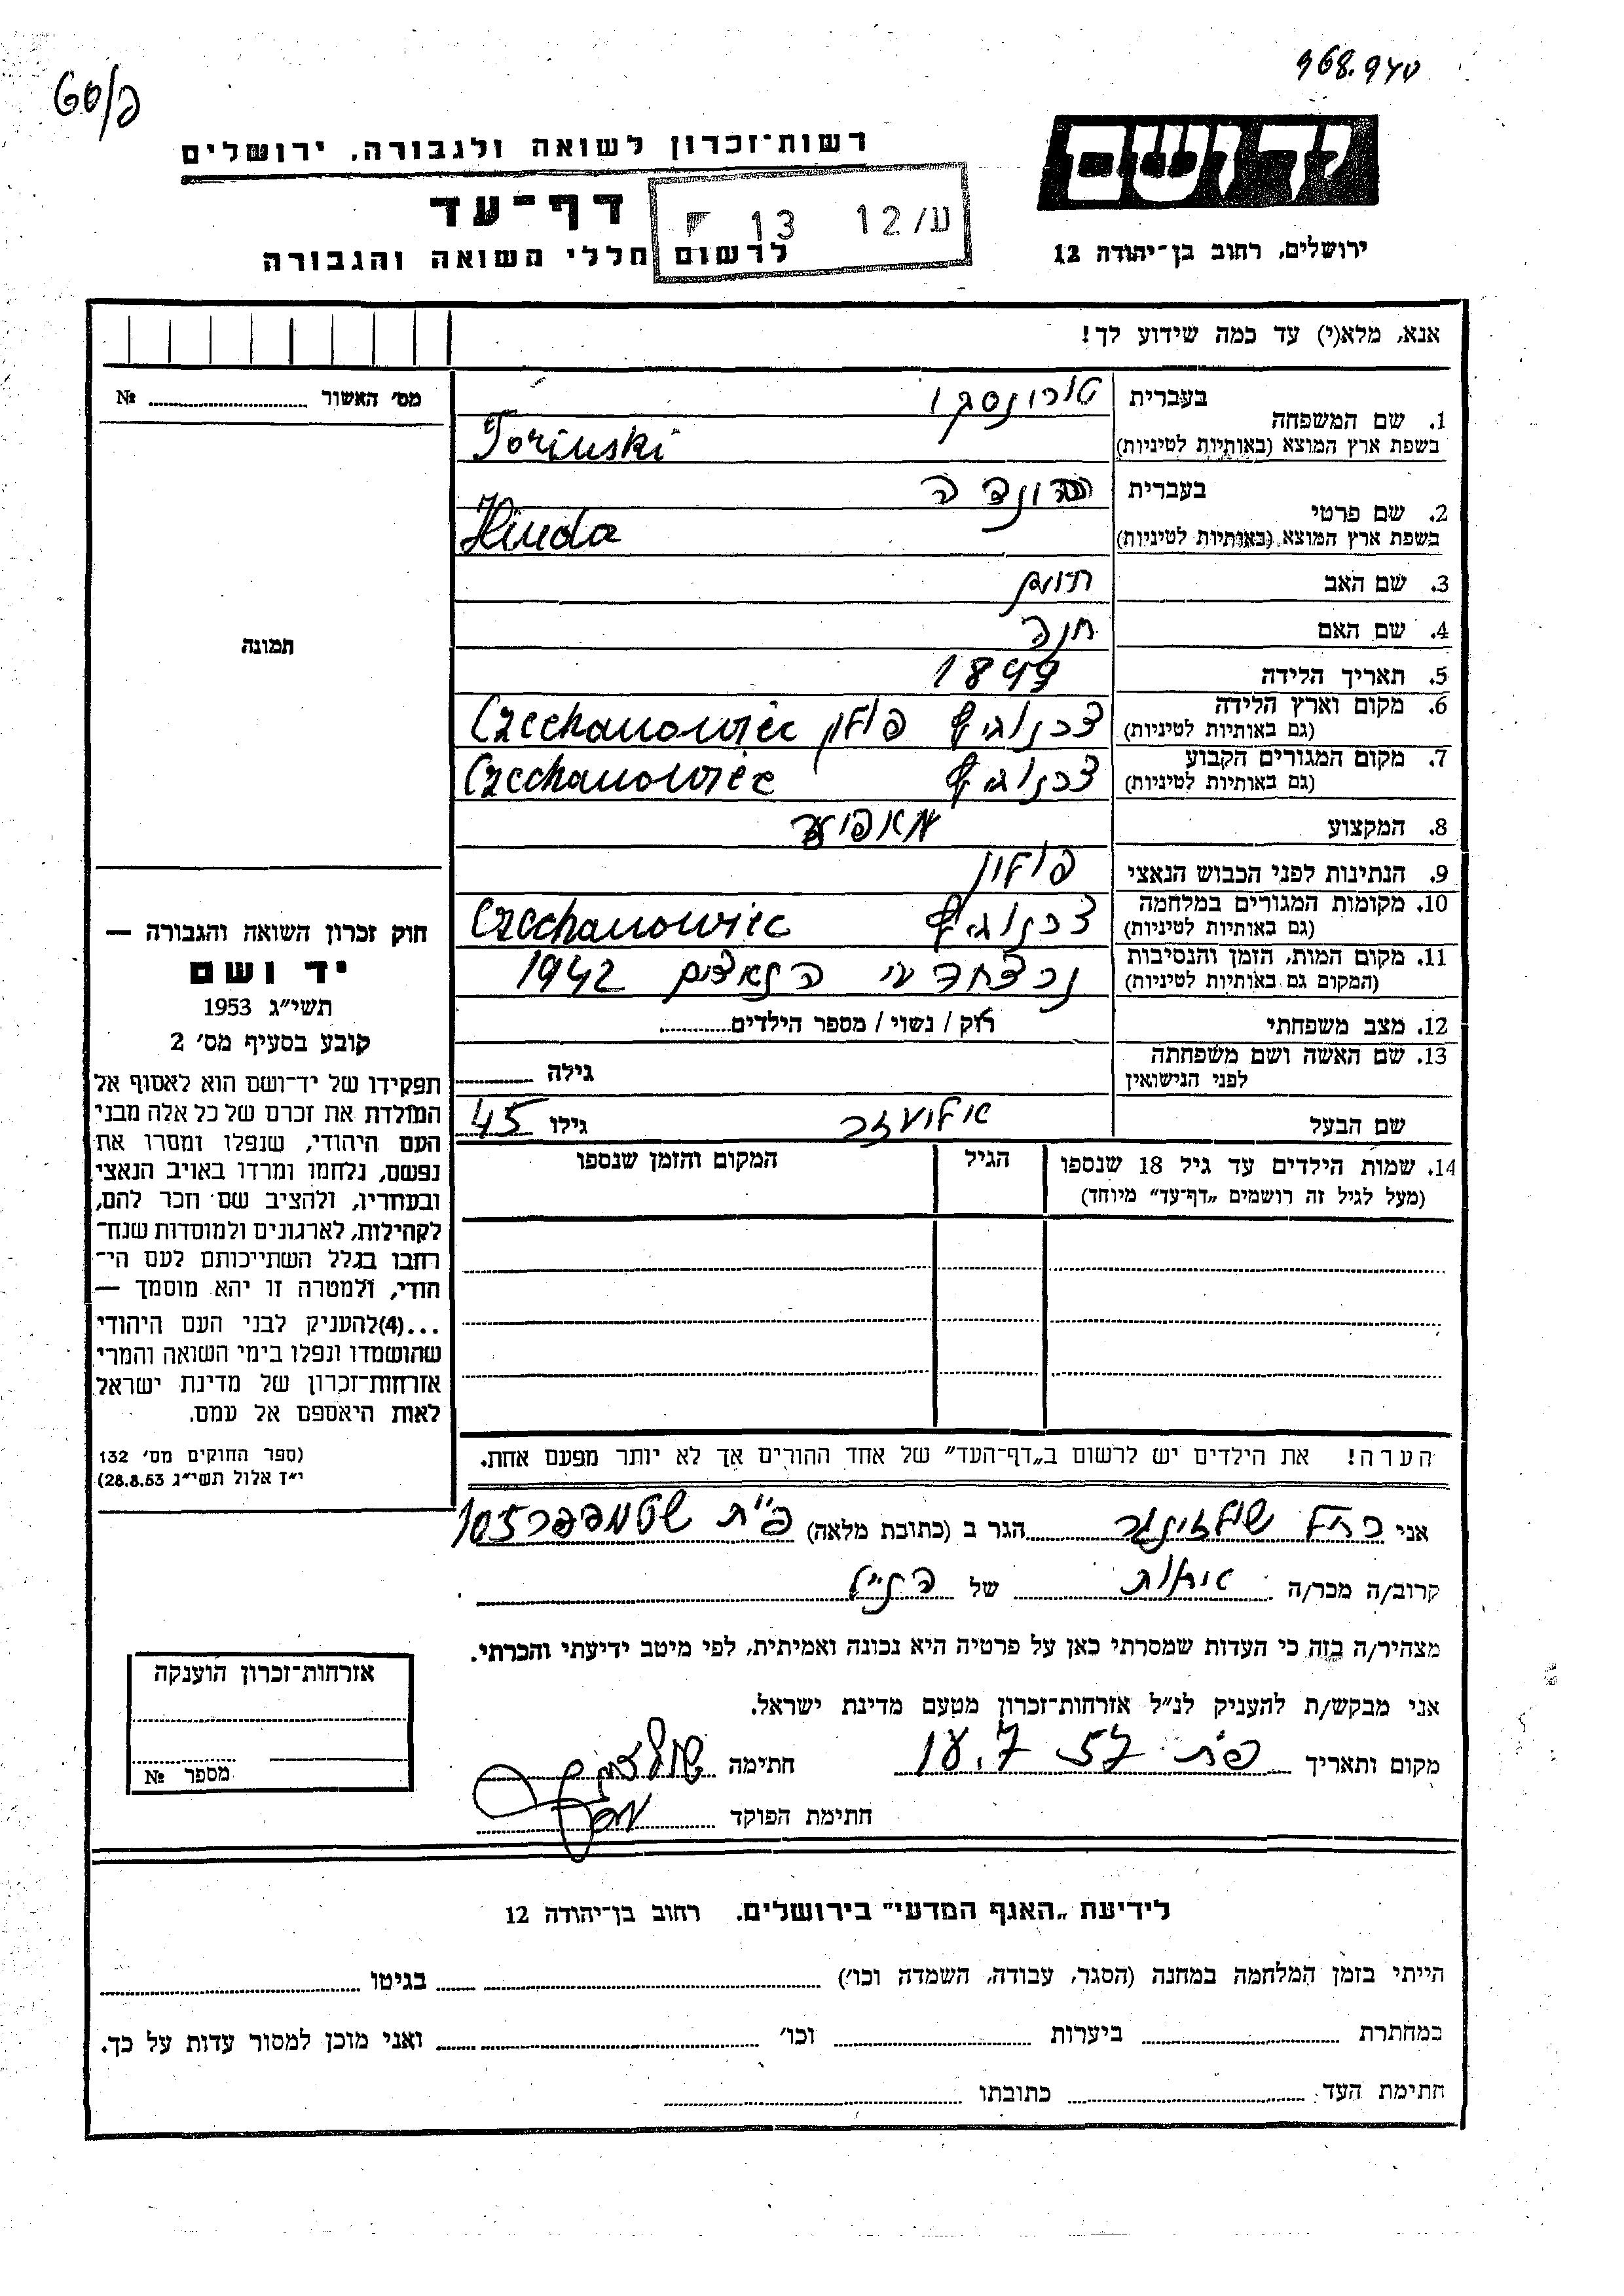 968.940
60/פ
יד ושם
ירושלים, רחוב בן־יהודה 12
רשות־זכרון לשואה ולגבורה, ירושלים
דף־עד
לרשום חללי השואה והגבורה
ע/12 13
אנא, מלא(י) עד כמה שידוע לך!
מס׳ האשור № 
תמונה
1. שם המשפחה
בעברית טורונסקי
בשפת ארץ המוצא (באותיות לטיניות) Toriuski
2. שם פרטי
בעברית הונדה
בשפת ארץ המוצא (באותיות לטיניות) Hinda
3. שם האב
4. שם האם חנה
5. תאריך הלידה 1897
6. מקום וארץ הלידה (גם באותיות לטיניות) צכנוביץ פולין Czechanowiec
7. מקום המגורים הקבוע (גם באותיות לטיניות) צכנוביץ Czechanowiec
8. המקצוע
9. הנתינות לפני הכבוש הנאצי פולין
10. מקומות המגורים במלחמה (גם באותיות לטיניות) צכנוביץ Czechanowiec
11. מקום המות, הזמן והנסיבות (המקום גם באותיות לטיניות) נרצחה ע״י הנאצים 1942
12. מצב משפחתי רוק / נשוי / מספר הילדים
13. שם האשה ושם משפחתה לפני הנישואין גילה
שם הבעל אליעזר גילו 45
14. שמות הילדים עד גיל 18 שנספו
(מעל לגיל זה רושמים „דף־עד״ מיוחד)
הגיל
המקום והזמן שנספו
הערה! את הילדים יש לרשום ב„דף־העד״ של אחד ההורים אך לא יותר מפעם אחת.
חוק זכרון השואה והגבורה —
יד ושם
תשי״ג 1953
קובע בסעיף מס׳ 2
תפקידו של יד־ושם הוא לאסוף אל
המולדת את זכרם של כל אלה מבני
העם היהודי, שנפלו ומסרו את
נפשם, נלחמו ומרדו באויב הנאצי
ובעוזריו, ולהציב שם וזכר להם,
לקהילות, לארגונים ולמוסדות שנח־
רבו בגלל השתייכותם לעם הי־
הודי, ולמטרה זו יהא מוסמך —
...(4)להעניק לבני העם היהודי
שהושמדו ונפלו בימי השואה והמרי
אזרחות־זכרון של מדינת ישראל
לאות היאספם אל עמם.
(ספר החוקים מס׳ 132
י״ז אלול תשי״ג 28.8.53)
אני רחל הגר ב (כתובת מלאה) פ״ת שטמפפר 105
קרוב/ה מכר/ה של הנ״ל
מצהיר/ה בזה כי העדות שמסרתי כאן על פרטיה היא נכונה ואמיתית, לפי מיטב ידיעתי והכרתי.
אני מבקש/ת להעניק לנ״ל אזרחות־זכרון מטעם מדינת ישראל.
מקום ותאריך פ״ת 18.7.57 חתימה
חתימת הפוקד
אזרחות־זכרון הוענקה
מספר №
לידיעת „האגף המדעי״ בירושלים. רחוב בן־יהודה 12
הייתי בזמן המלחמה במחנה (הסגר, עבודה, השמדה וכו׳) בגיטו
במחתרת ביערות וכו׳ ואני מוכן למסור עדות על כך.
חתימת העד כתובתו